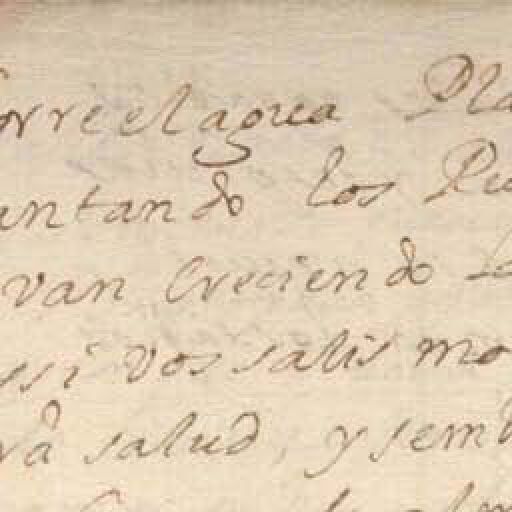 orre el agua Pla
untando los Ru
van Creciendo la
ssi vos salis mo
râ salud, y semb